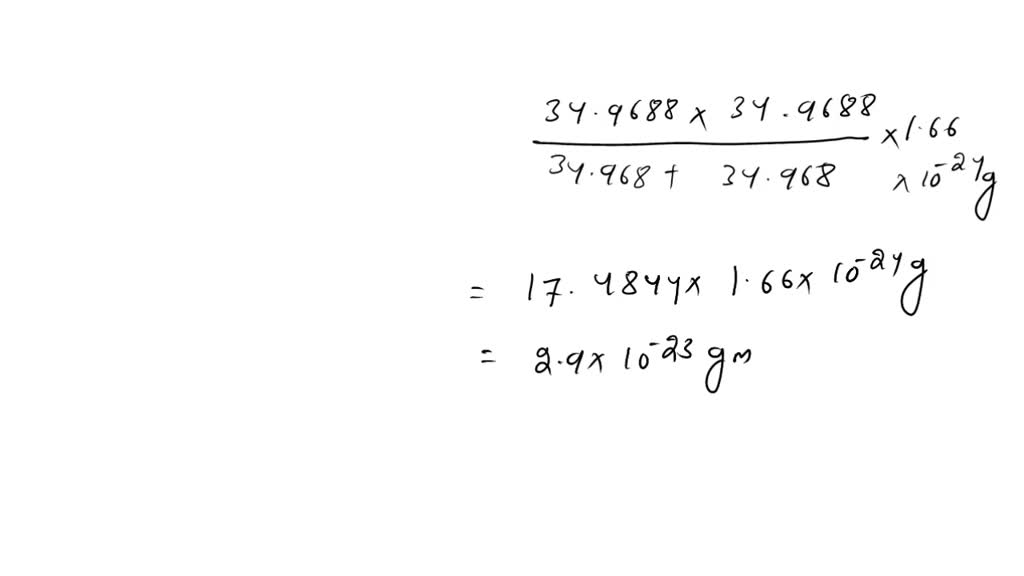 34.9688 x 34.9688
34.968 + 34.968
x 1.66
x 10⁻²⁴g
= 17.4844 x 1.66 x 10⁻²⁴g
= 2.9 x 10⁻²³ gm